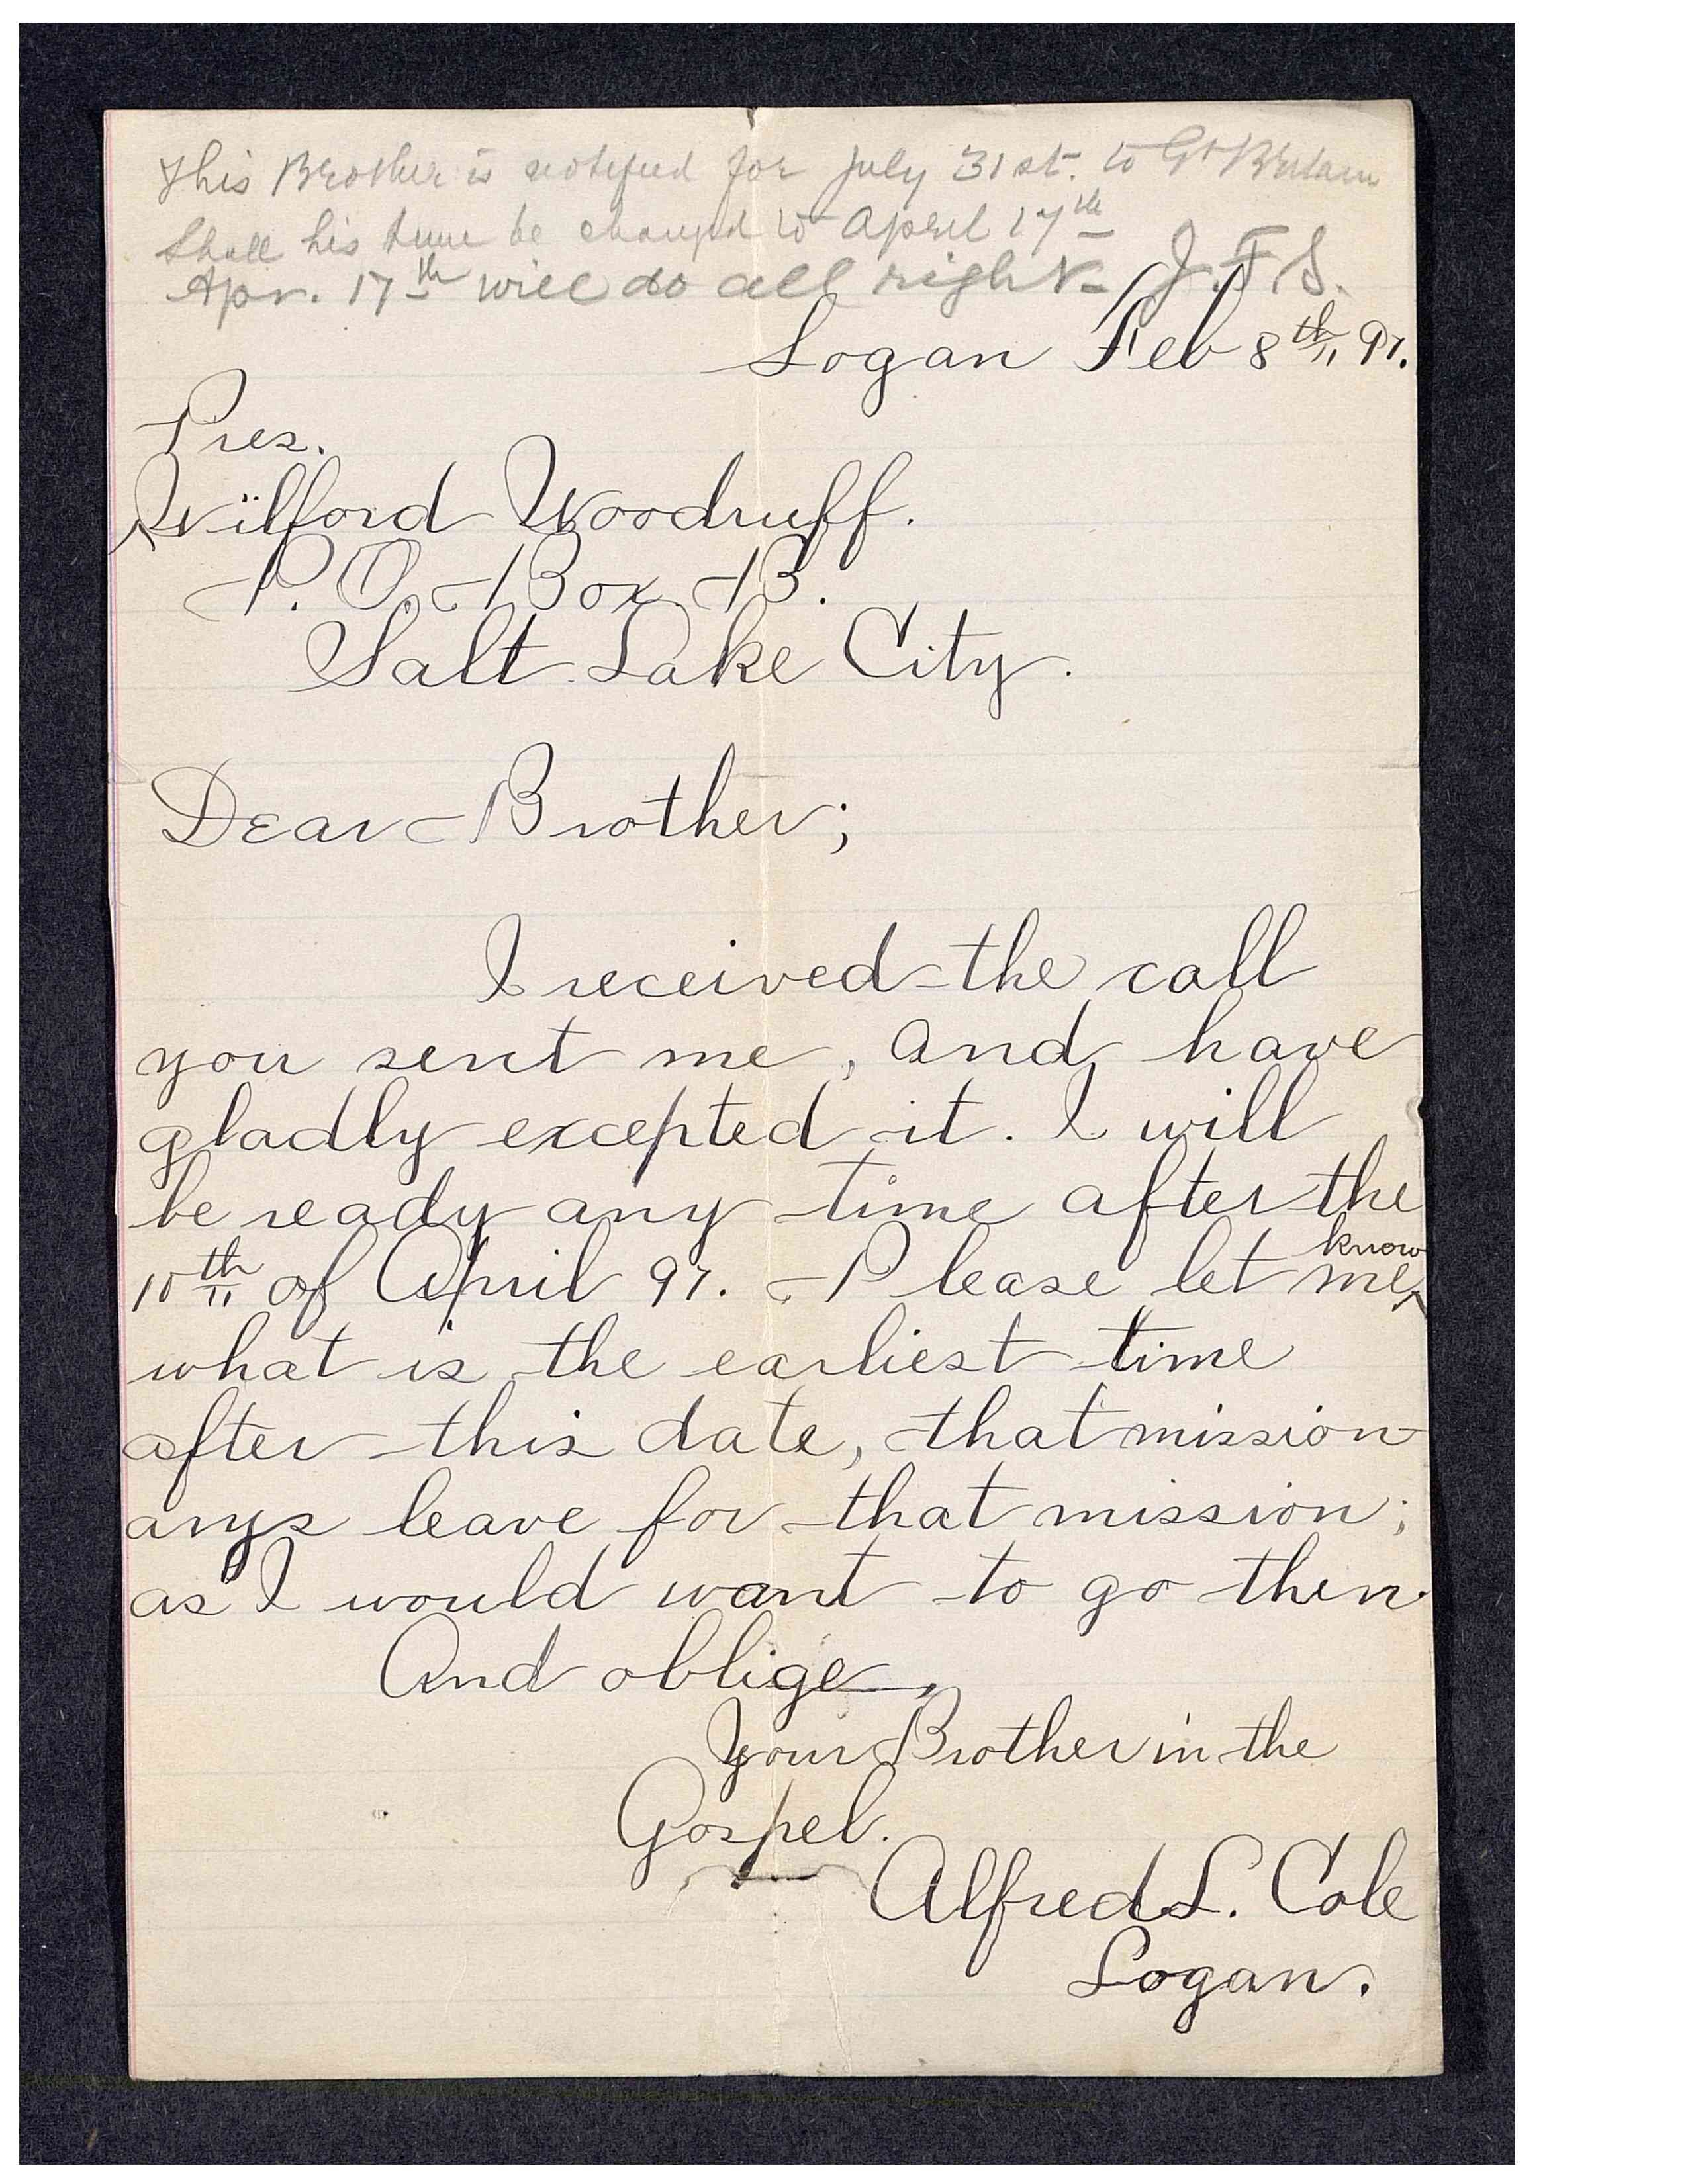 This Brother is notified for July 31st. to Gt Britain
Shall his time be changed to April 17th
Apr. 17th will do all right - J. F. S.
Logan Feb 8th, 97.
Pres.
Wilford Woodruff.
P. O. Box B.
Salt Lake City.
Dear Brother;
I received the call
you sent me, and have
gladly excepted it. I will
be ready any time after the
know
10th of April 97. Please let me^
what is the earliest time
after this date, that mission
arys leave for that mission;
as I would want to go then.
And oblige,
Your Brother in the
Gospel.
Alfred L. Cole
Logan.